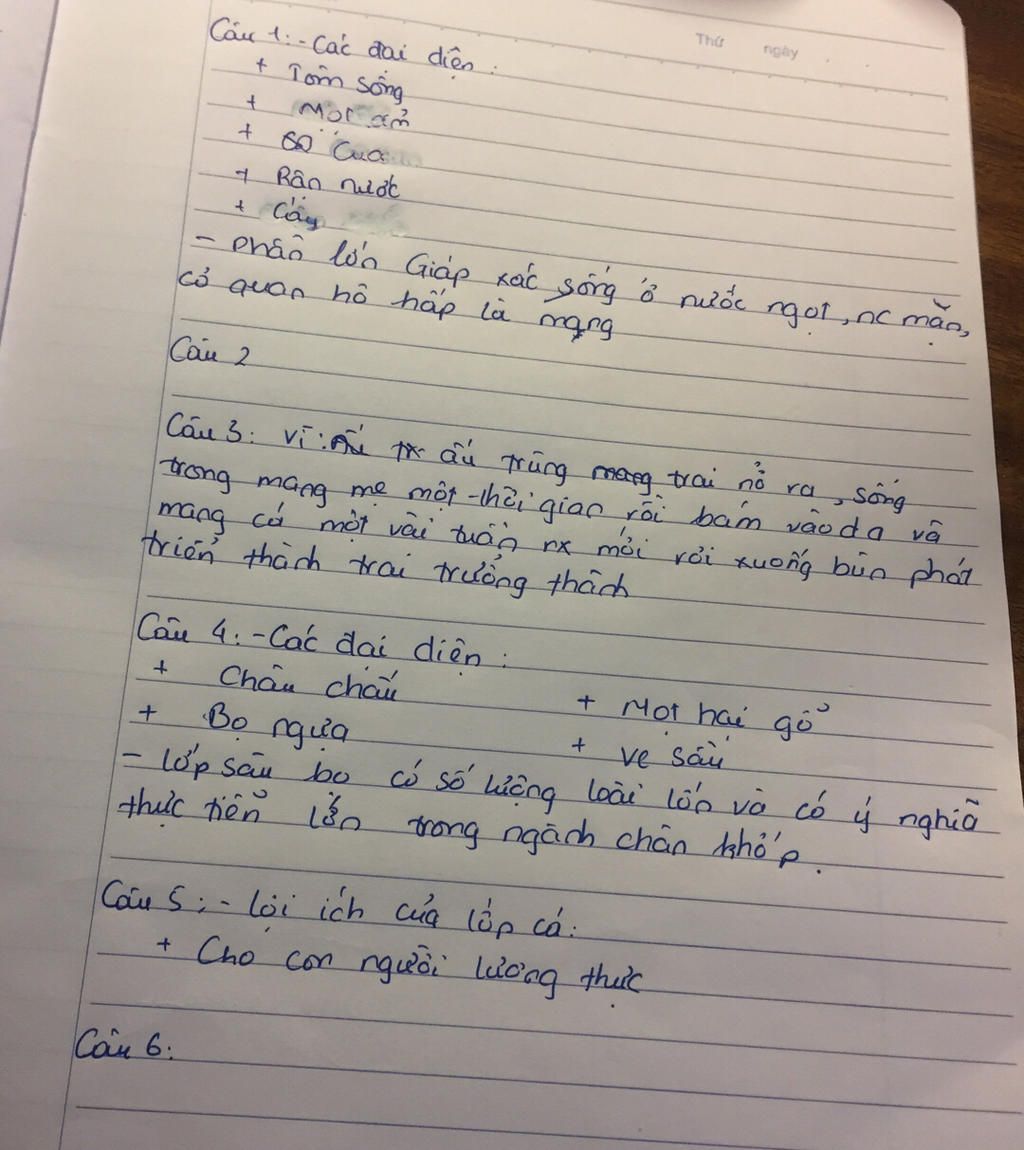 Thứ ngày
Câu 1: - Các đại diện :
+ Tôm sông
+ Mọt ẩm
+ Cua
+ Rận nước
+ Cáy
- phần lớn Giáp xác sống ở nước ngọt, nc mặn,
cơ quan hô hấp là mang
Câu 2
Câu 3: vì: ấu trùng trai nở ra, sống
trong mang mẹ một thời gian rồi bám vào da và
mang cá một vài tuần nx mới rơi xuống bùn phát
triển thành trai trưởng thành
Câu 4: - Các đại diện :
+ Châu chấu + Mọt hại gỗ
+ Bọ ngựa + ve sầu
- lớp sâu bọ có số lượng loài lớn và có ý nghĩa
thực tiễn lớn trong ngành chân khớp.
Câu 5: - lợi ích của lớp cá:
+ Cho con người lương thực
Câu 6: